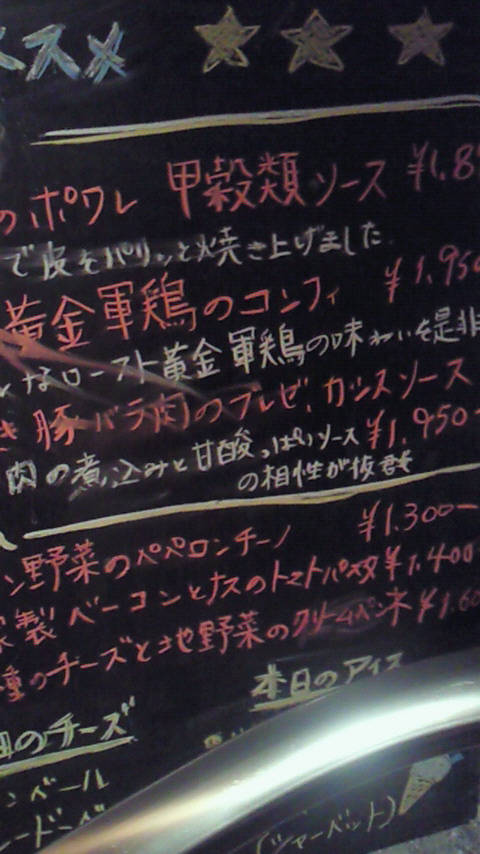 スメ
のポワレ 甲殻類ソース ¥1.8
で皮をパリッと焼き上げました
黄金軍鶏のコンフィ ¥1.950
なロースト黄金軍鶏の味わいを是非
き豚バラ肉のブレゼ、カシスソース
肉の煮込みと甘酸っぱいソース ¥1.950-
の相性が抜群
ン野菜のペペロンチーノ ¥1.300-
家製 ベーコンとナスのトマトパスタ ¥1.400
種のチーズと地野菜のクリームペンネ ¥1.60
本日のアイス
のチーズ
ンベール
ードーベ
(シャーベット)